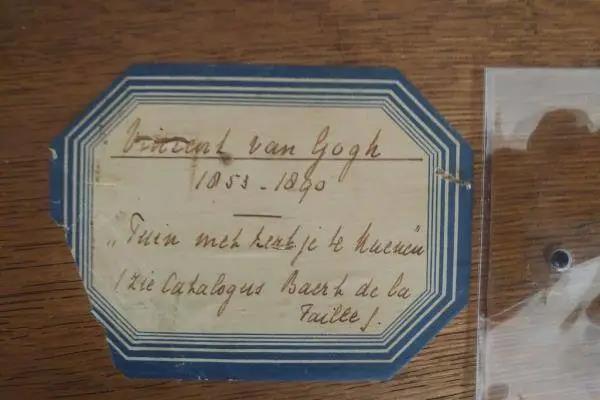 Vincent van Gogh
1853 - 1890
„Tuin met kerkje te Nuenen"
(zie Catalogus Baert de la
Faille).